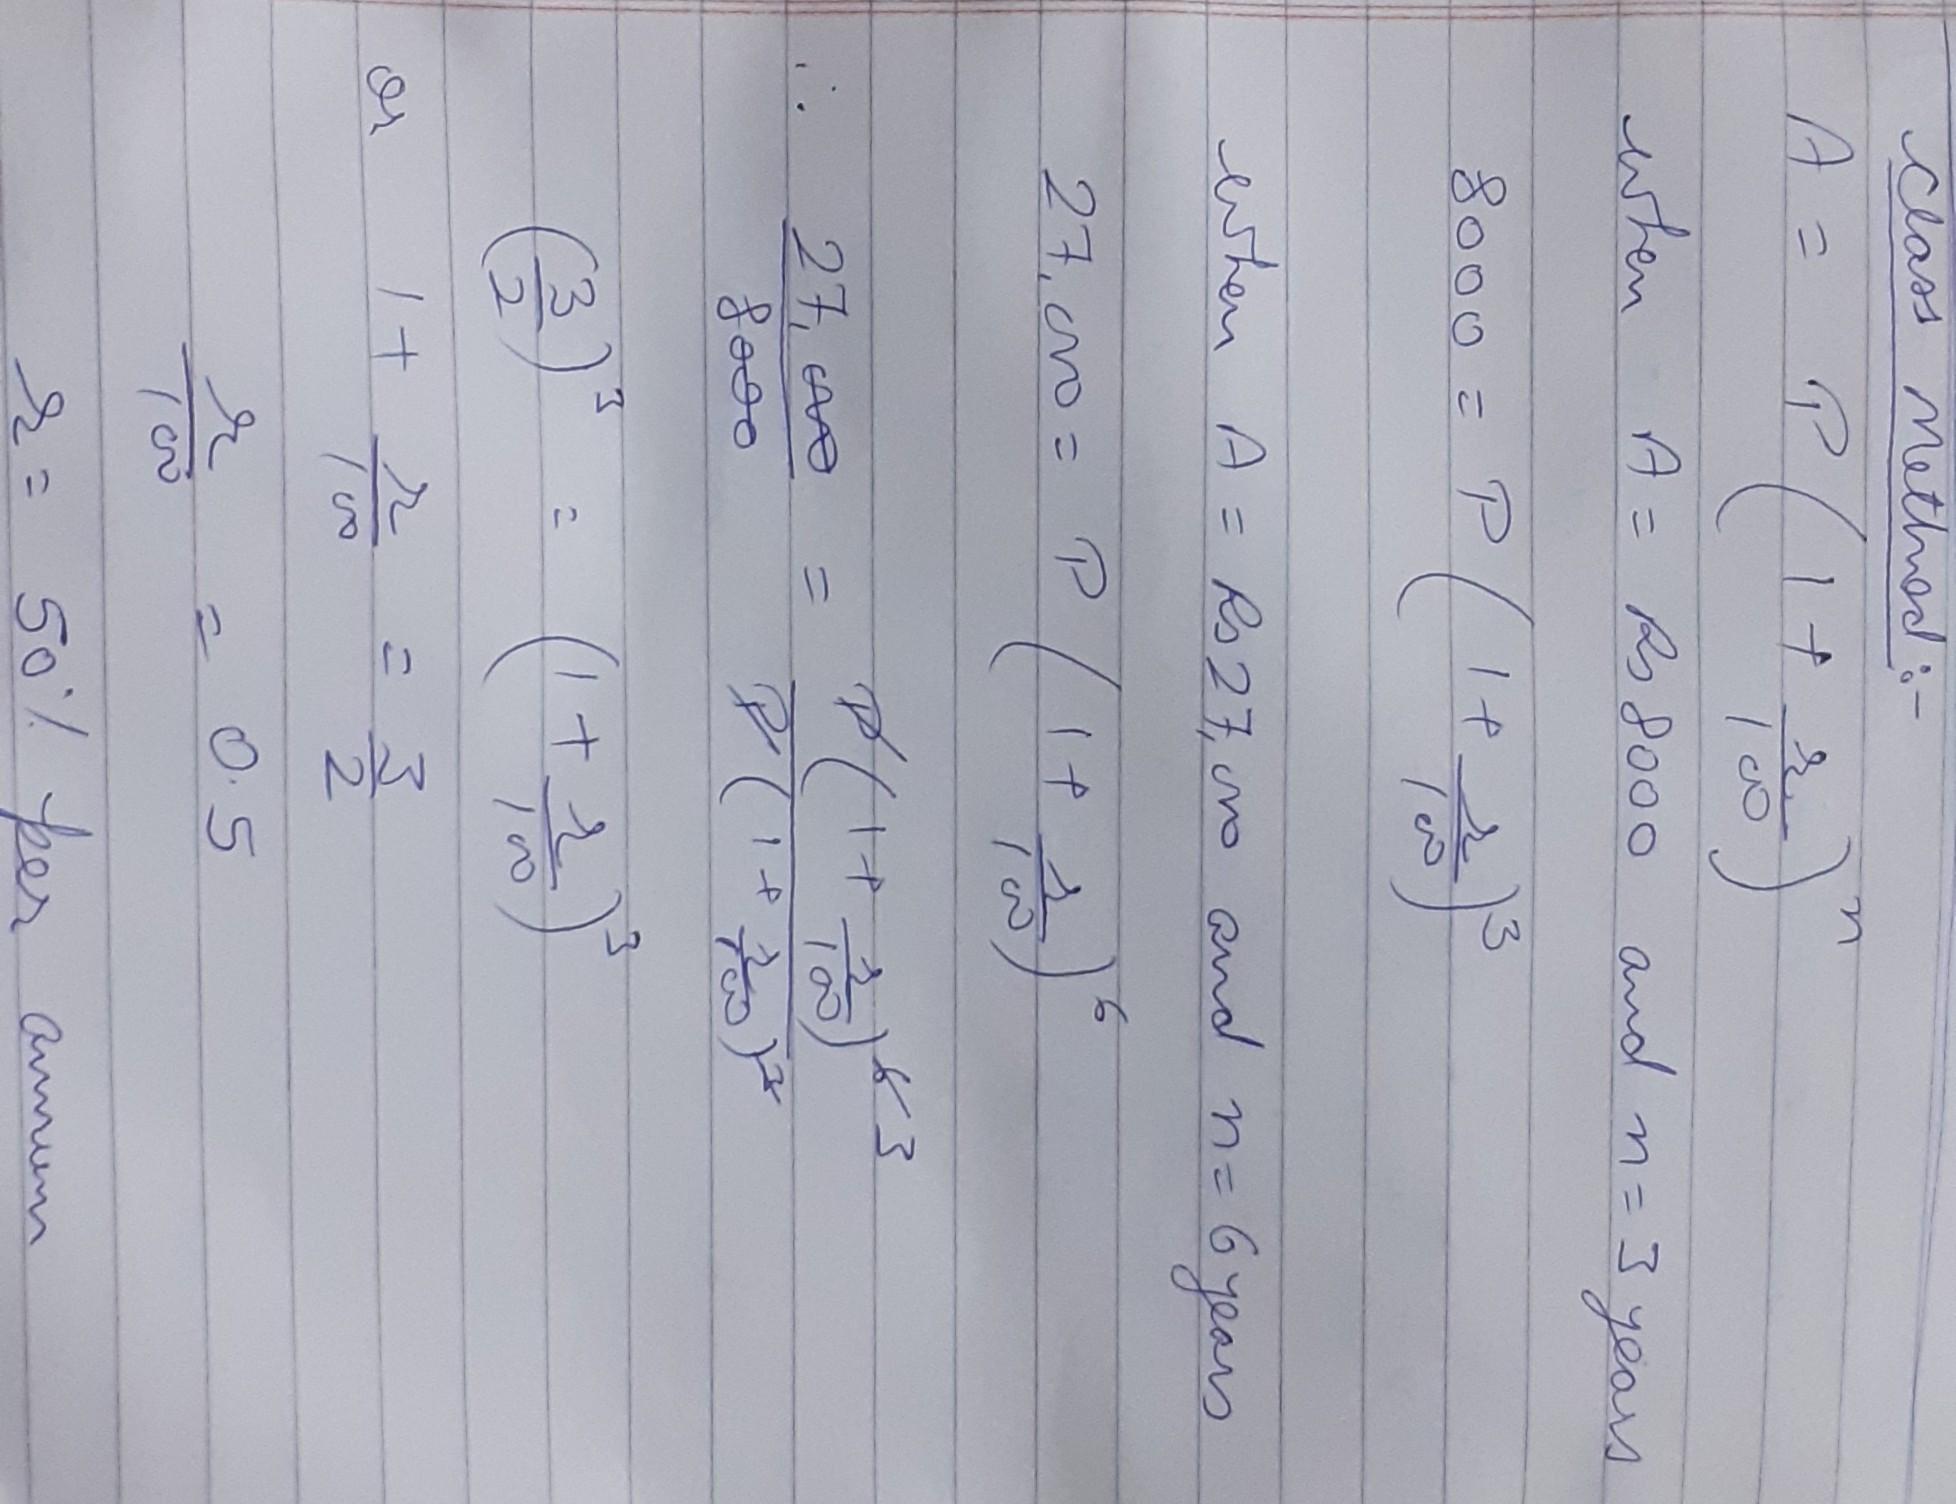 Class Method:-
A = P (1 + r/100)^n
When A = Rs 8000 and n = 3 years
8000 = P (1 + r/100)^3
When A = Rs 27,000 and n = 6 years
27,000 = P (1 + r/100)^6
∴ 27,000/8000 = P(1 + r/100)^6 3/P(1 + r/100)^3
(3/2)^3 = (1 + r/100)^3
or 1 + r/100 = 3/2
r/100 = 0.5
r = 50% per annum